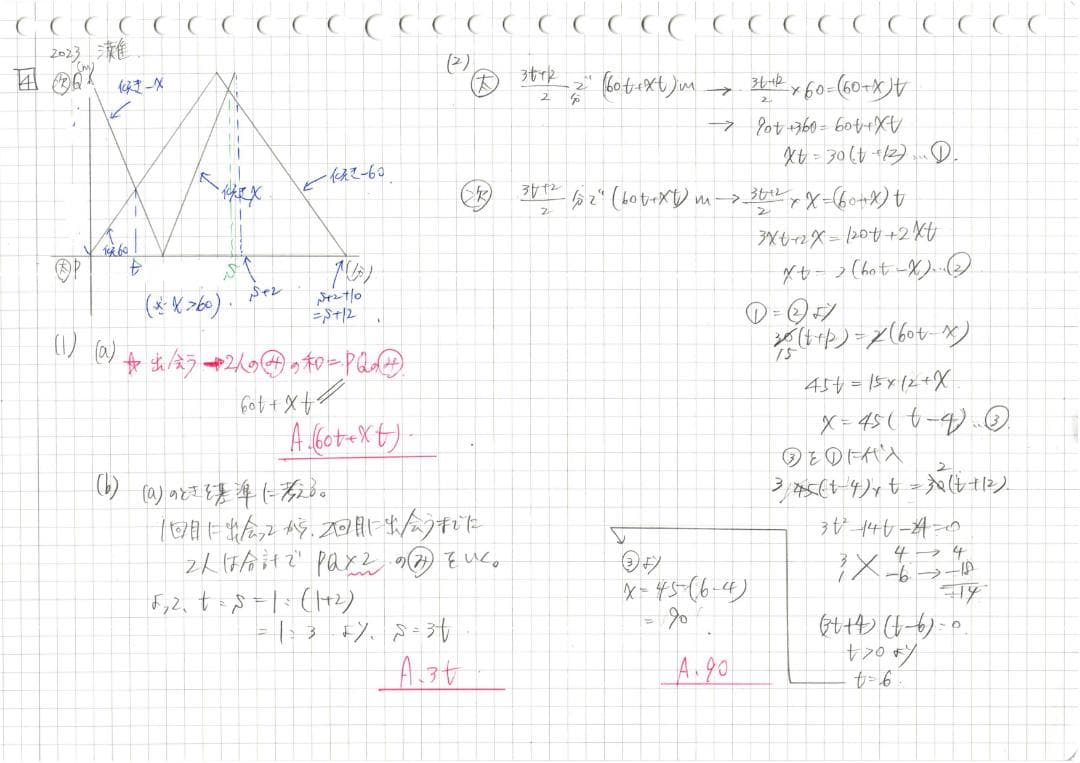 2023 灘
4
次 Q (m)
傾き-x
傾き60
傾きx
傾き-60
太 P
t
s
s+2
s+2+10
=s+12
(分)
(※ x>60)
(1) (a) ☆ 出会う→2人のみの和=PQのみ
60t+xt
A.(60t+xt)
(b) (a)のときを基準に考える。
1回目に出会ってから、2回目に出会うまでに
2人は合計でPQ×2のみをいく。
よって、t:s=1:(1+2)
=1:3 より、s=3t
A.3t
(2)
太 3t+12/2 分で(60t+xt)m → 3t+12/2 ×60=(60+x)t
→ 90t+360=60t+xt
xt=30(t+12)…①
次 3t+2/2 分で(60t+xt)m→ 3t+2/2 ×x=(60+x)t
3xt+2x=120t+2xt
xt=2(60t-x)…②
①=②より
30(t+12)=2(60t-x)
15
45t=15×12+x
x=45(t-4)…③
③を①に代入
3 45(t-4)×t=30(t+12)
2
3t²-14t-24=0
3 4→4
1 -6→-18
-14
(3t+4)(t-6)=0
t>0より
t=6
③より
x=45(6-4)
=90
A.90